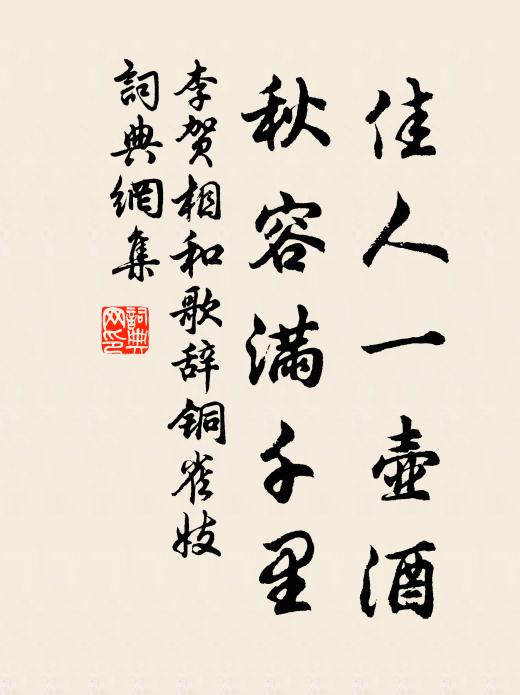 佳人一壺酒
秋容滿千里
李贺相和歌辞铜雀妓
詞典網集
詞典网印